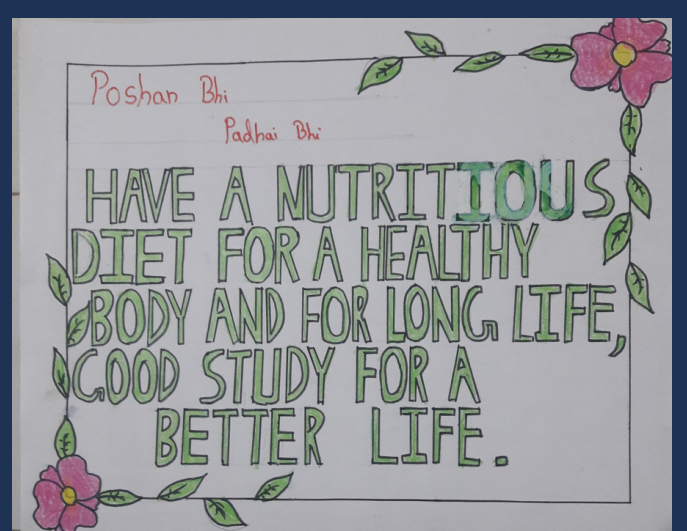 Poshan Bhi
Padhai Bhi
HAVE A NUTRITIOUS
DIET FOR A HEALTHY
BODY AND FOR LONG LIFE,
GOOD STUDY FOR A
BETTER LIFE.